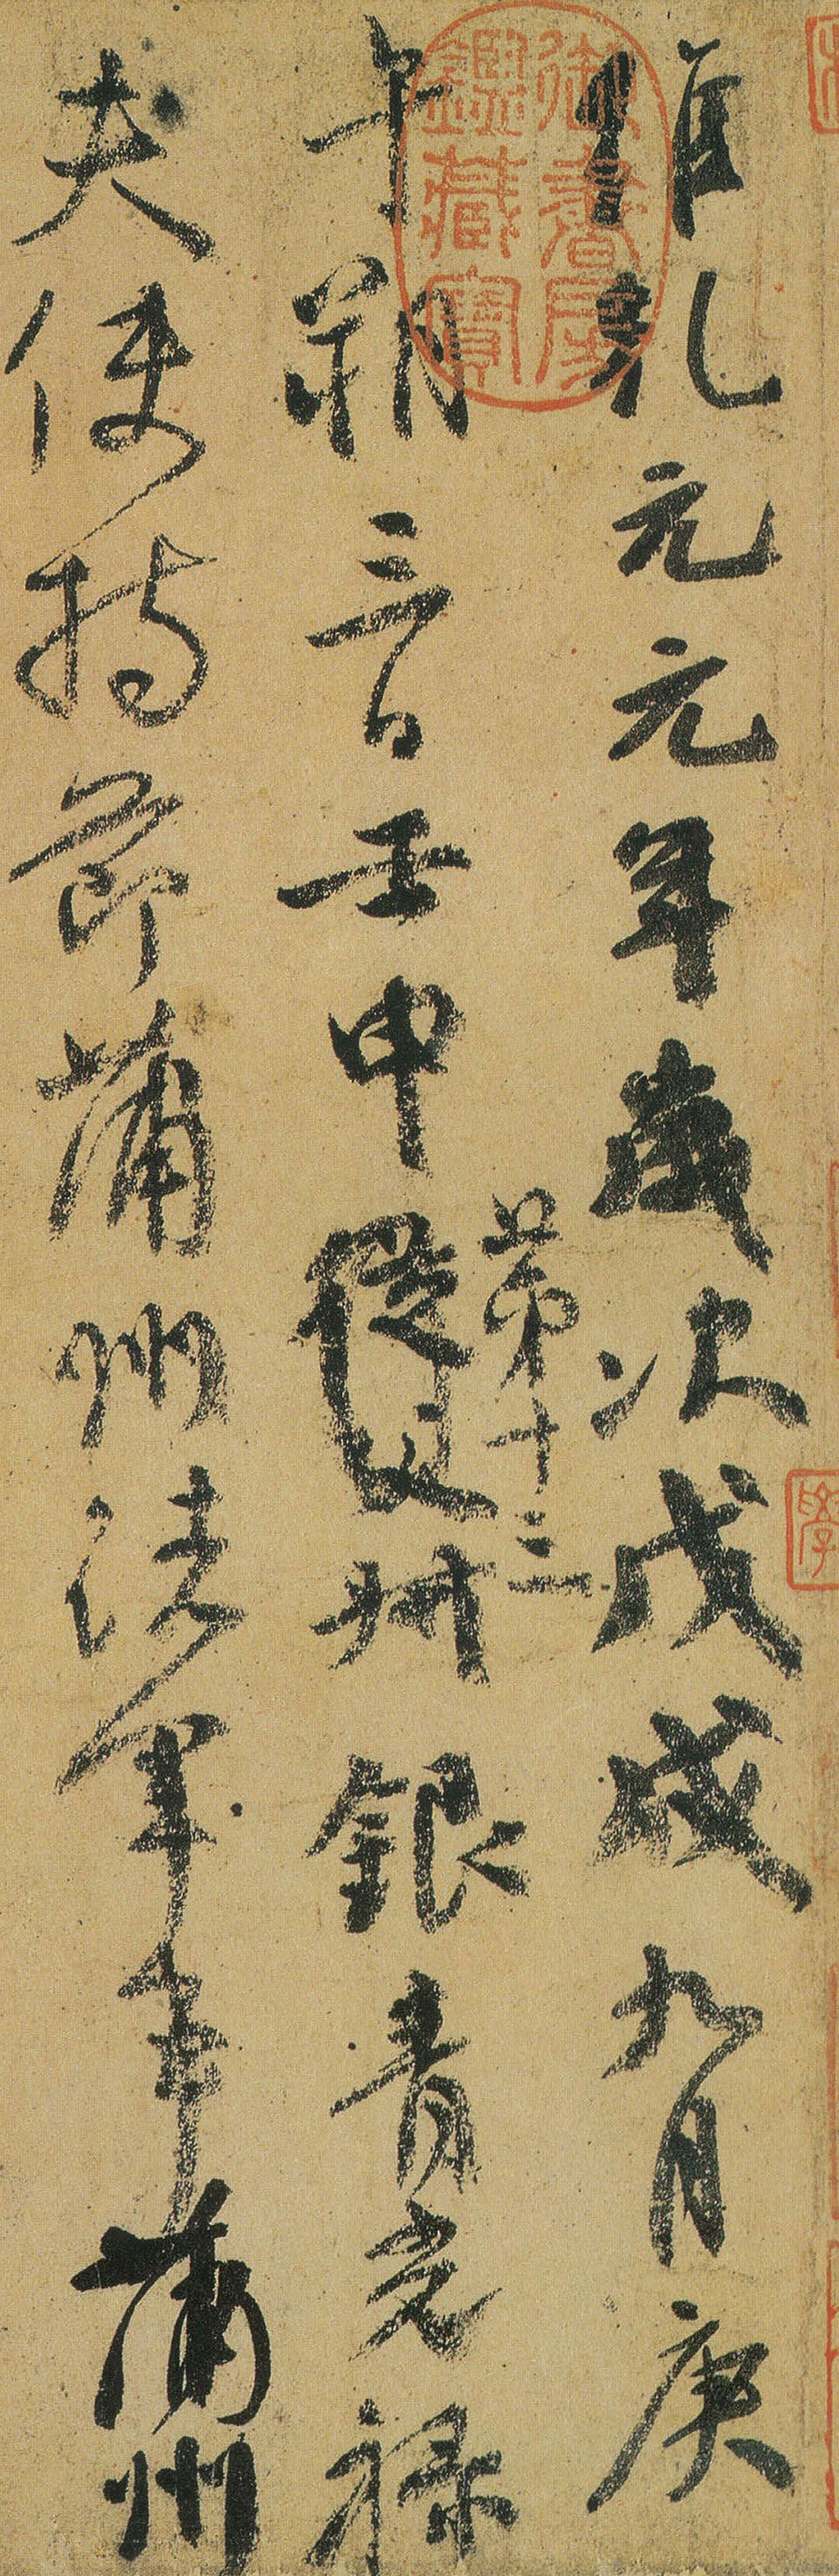 維乾元元年歲次戊戌九月庚
午朔三日壬申從父叔銀青光祿
第十三
夫使持節蒲州諸軍事蒲州
御書房鑑藏寶
學